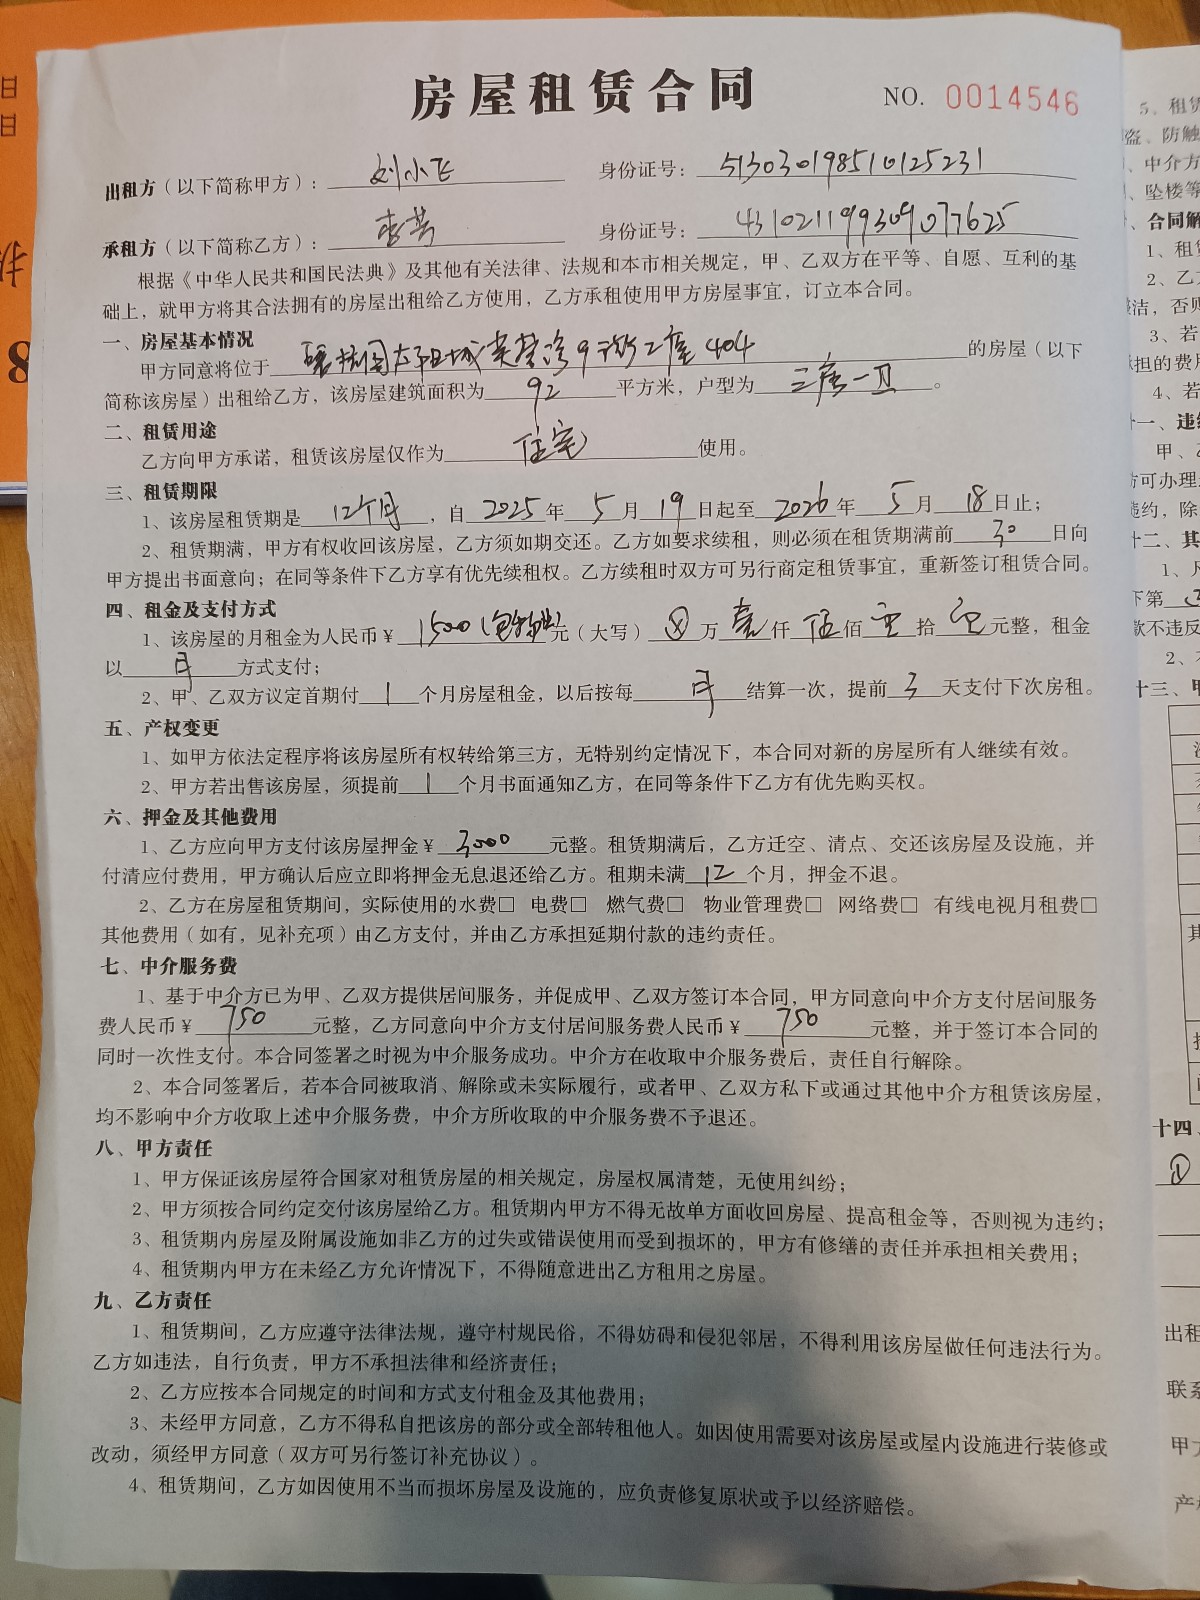 房屋租赁合同
NO. 0014546
出租方（以下简称甲方）：刘小飞 身份证号：513030198510125231
承租方（以下简称乙方）： 身份证号：431021199309077625
根据《中华人民共和国民法典》及其他有关法律、法规和本市相关规定，甲、乙双方在平等、自愿、互利的基
础上，就甲方将其合法拥有的房屋出租给乙方使用，乙方承租使用甲方房屋事宜，订立本合同。
一、房屋基本情况
甲方同意将位于 9街2座404 的房屋（以下
简称该房屋）出租给乙方，该房屋建筑面积为92平方米，户型为 一卫。
二、租赁用途
乙方向甲方承诺，租赁该房屋仅作为住宅使用。
三、租赁期限
1、该房屋租赁期是12个月，自2025年5月19日起至2026年5月18日止；
2、租赁期满，甲方有权收回该房屋，乙方须如期交还。乙方如要求续租，则必须在租赁期满前30日向
甲方提出书面意向；在同等条件下乙方享有优先续租权。乙方续租时双方可另行商定租赁事宜，重新签订租赁合同。
四、租金及支付方式
1、该房屋的月租金为人民币￥1500（包物业）元（大写）⊗万壹仟伍佰零拾零元整，租金
以月方式支付；
2、甲、乙双方议定首期付1个月房屋租金，以后按每月结算一次，提前3天支付下次房租。
五、产权变更
1、如甲方依法定程序将该房屋所有权转给第三方，无特别约定情况下，本合同对新的房屋所有人继续有效。
2、甲方若出售该房屋，须提前1个月书面通知乙方，在同等条件下乙方有优先购买权。
六、押金及其他费用
1、乙方应向甲方支付该房屋押金￥3000元整。租赁期满后，乙方迁空、清点、交还该房屋及设施，并
付清应付费用，甲方确认后应立即将押金无息退还给乙方。租期未满12个月，押金不退。
2、乙方在房屋租赁期间，实际使用的水费□ 电费□ 燃气费□ 物业管理费□ 网络费□ 有线电视月租费□
其他费用（如有，见补充项）由乙方支付，并由乙方承担延期付款的违约责任。
七、中介服务费
1、基于中介方已为甲、乙双方提供居间服务，并促成甲、乙双方签订本合同，甲方同意向中介方支付居间服务
费人民币￥750元整，乙方同意向中介方支付居间服务费人民币￥750元整，并于签订本合同的
同时一次性支付。本合同签署之时视为中介服务成功。中介方在收取中介服务费后，责任自行解除。
2、本合同签署后，若本合同被取消、解除或未实际履行，或者甲、乙双方私下或通过其他中介方租赁该房屋，
均不影响中介方收取上述中介服务费，中介方所收取的中介服务费不予退还。
八、甲方责任
1、甲方保证该房屋符合国家对租赁房屋的相关规定，房屋权属清楚，无使用纠纷；
2、甲方须按合同约定交付该房屋给乙方。租赁期内甲方不得无故单方面收回房屋、提高租金等，否则视为违约；
3、租赁期内房屋及附属设施如非乙方的过失或错误使用而受到损坏的，甲方有修缮的责任并承担相关费用；
4、租赁期内甲方在未经乙方允许情况下，不得随意进出乙方租用之房屋。
九、乙方责任
1、租赁期间，乙方应遵守法律法规，遵守村规民俗，不得妨碍和侵犯邻居，不得利用该房屋做任何违法行为。
乙方如违法，自行负责，甲方不承担法律和经济责任；
2、乙方应按本合同规定的时间和方式支付租金及其他费用；
3、未经甲方同意，乙方不得私自把该房的部分或全部转租他人。如因使用需要对该房屋或屋内设施进行装修或
改动，须经甲方同意（双方可另行签订补充协议）。
4、租赁期间，乙方如因使用不当而损坏房屋及设施的，应负责修复原状或予以经济赔偿。
5、租赁
盗、防触
中介方
坠楼等
合同解
1、租
2、乙
洁，否则
3、若
担的费用
4、若
十一、违
甲、
方可办理
违约，除
十二、其
1、凡
下第
款不违反
2、
十三、甲
十四、
①
出租
联系
甲方
产权